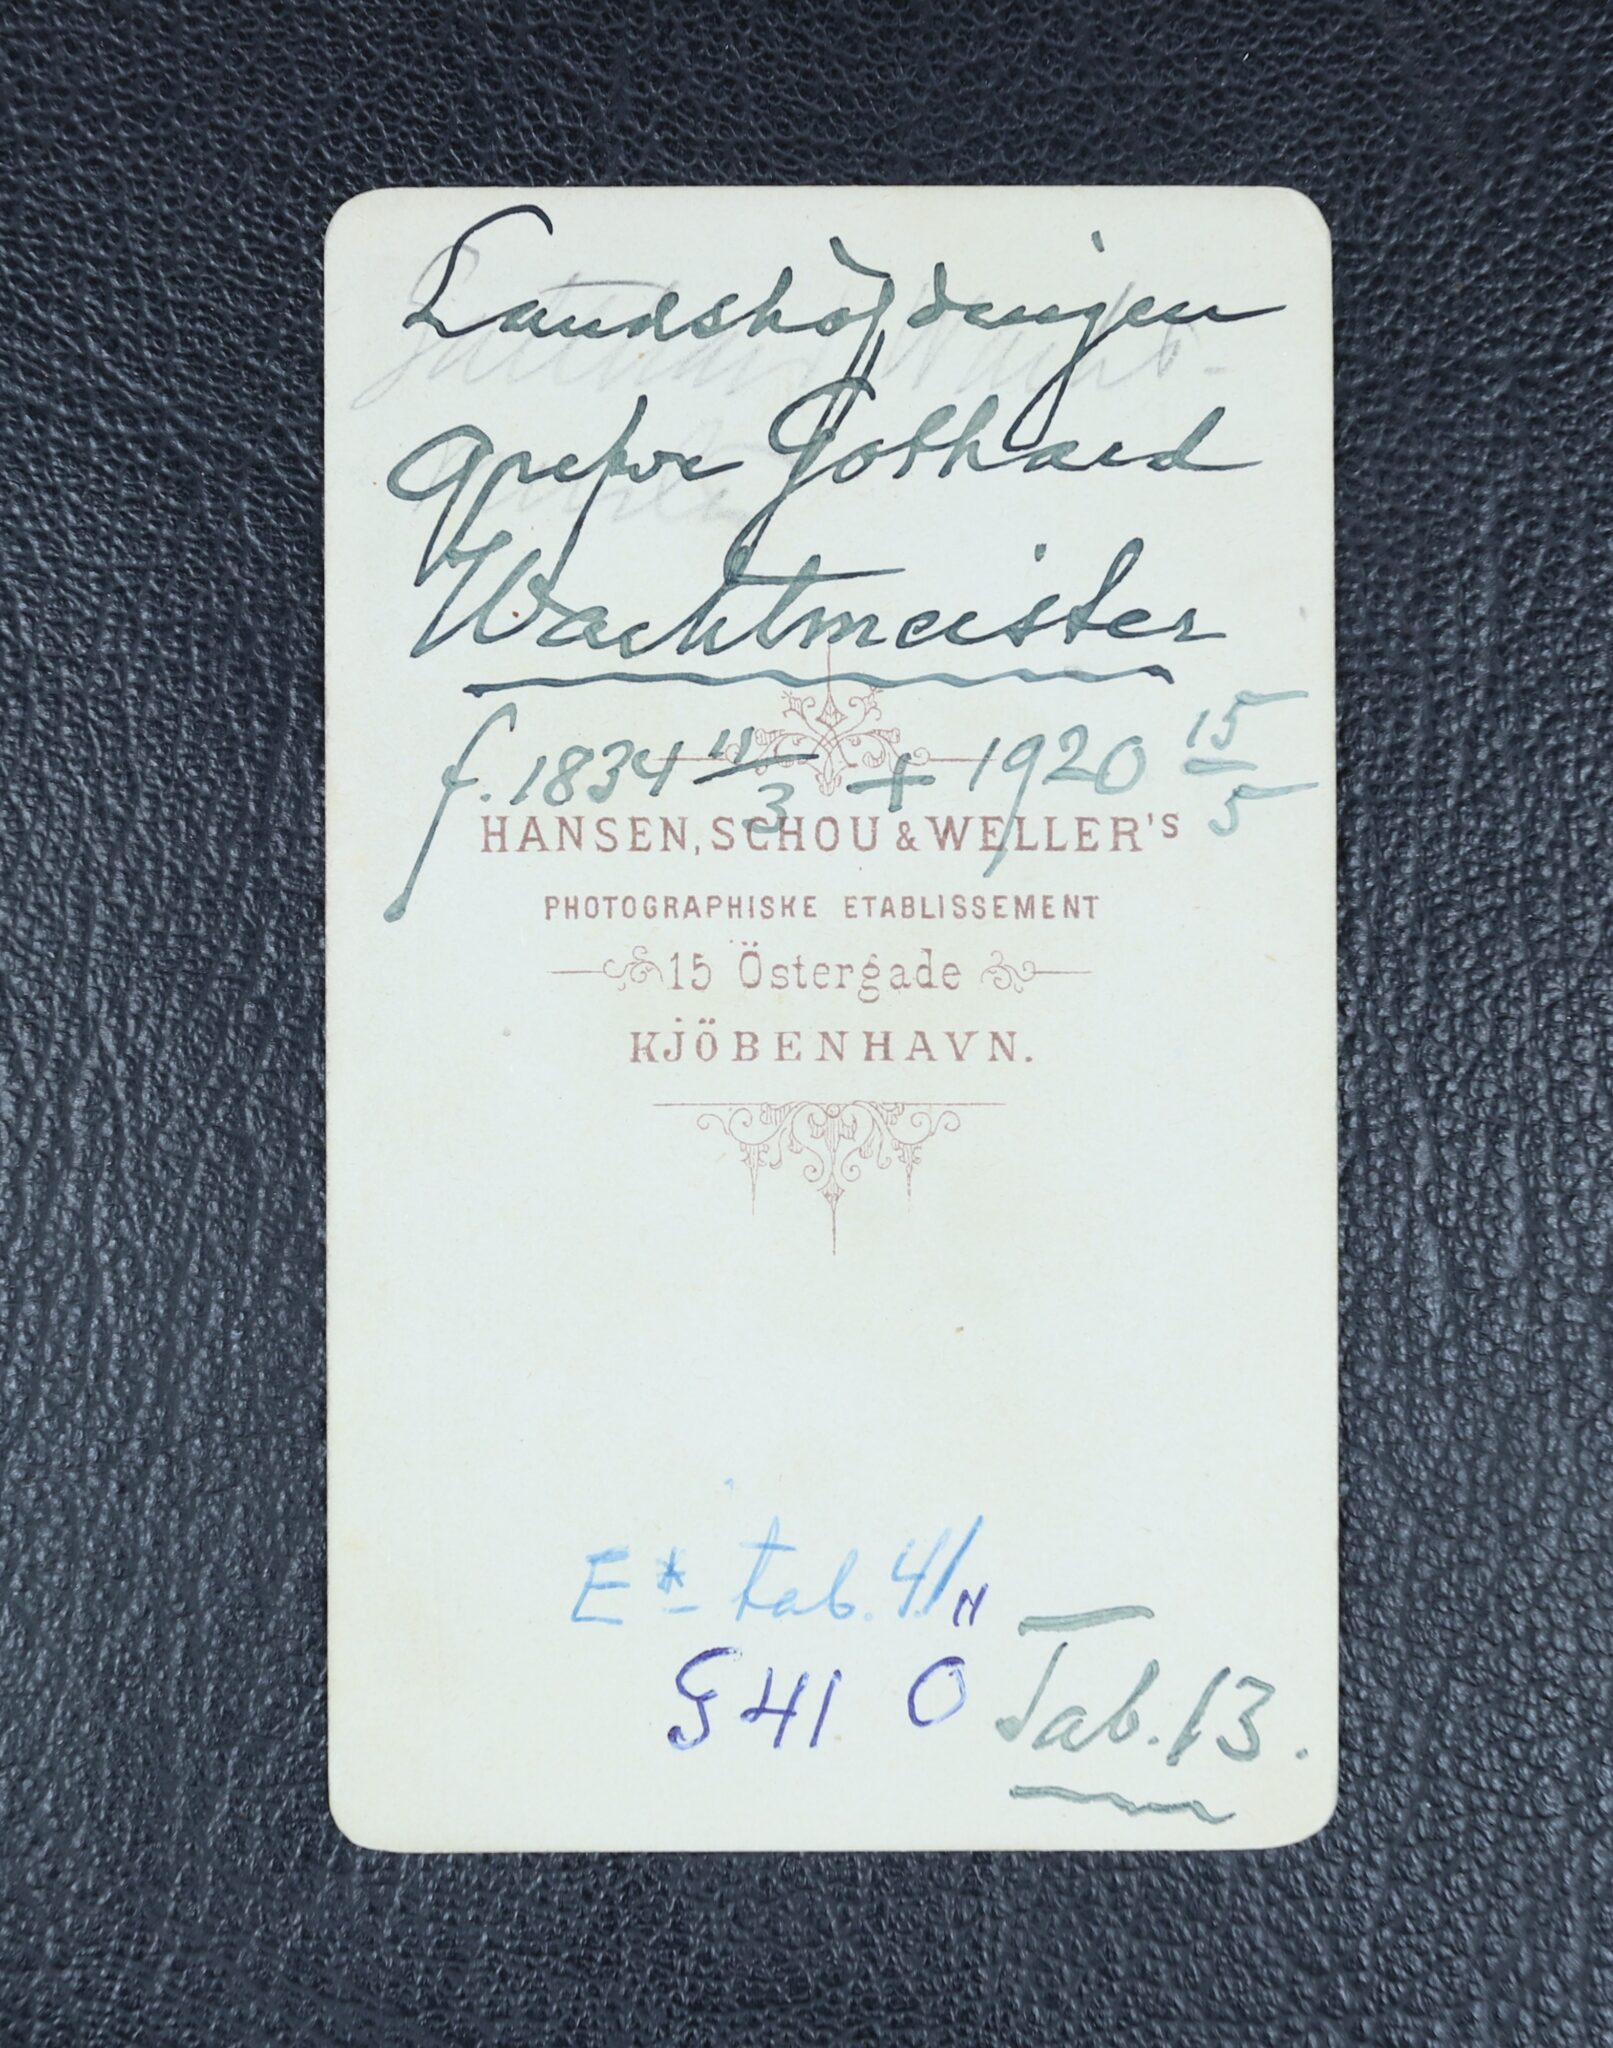 Landshöfdingen
Grefve Gotthard
Wachtmeister
f. 1834 11/3 + 1920 15/5
HANSEN, SCHOU & WELLER'S
PHOTOGRAPHISKE ETABLISSEMENT
15 Östergade
KJÖBENHAVN.
E* - tab. 41
G 41 O
Tab. 13.